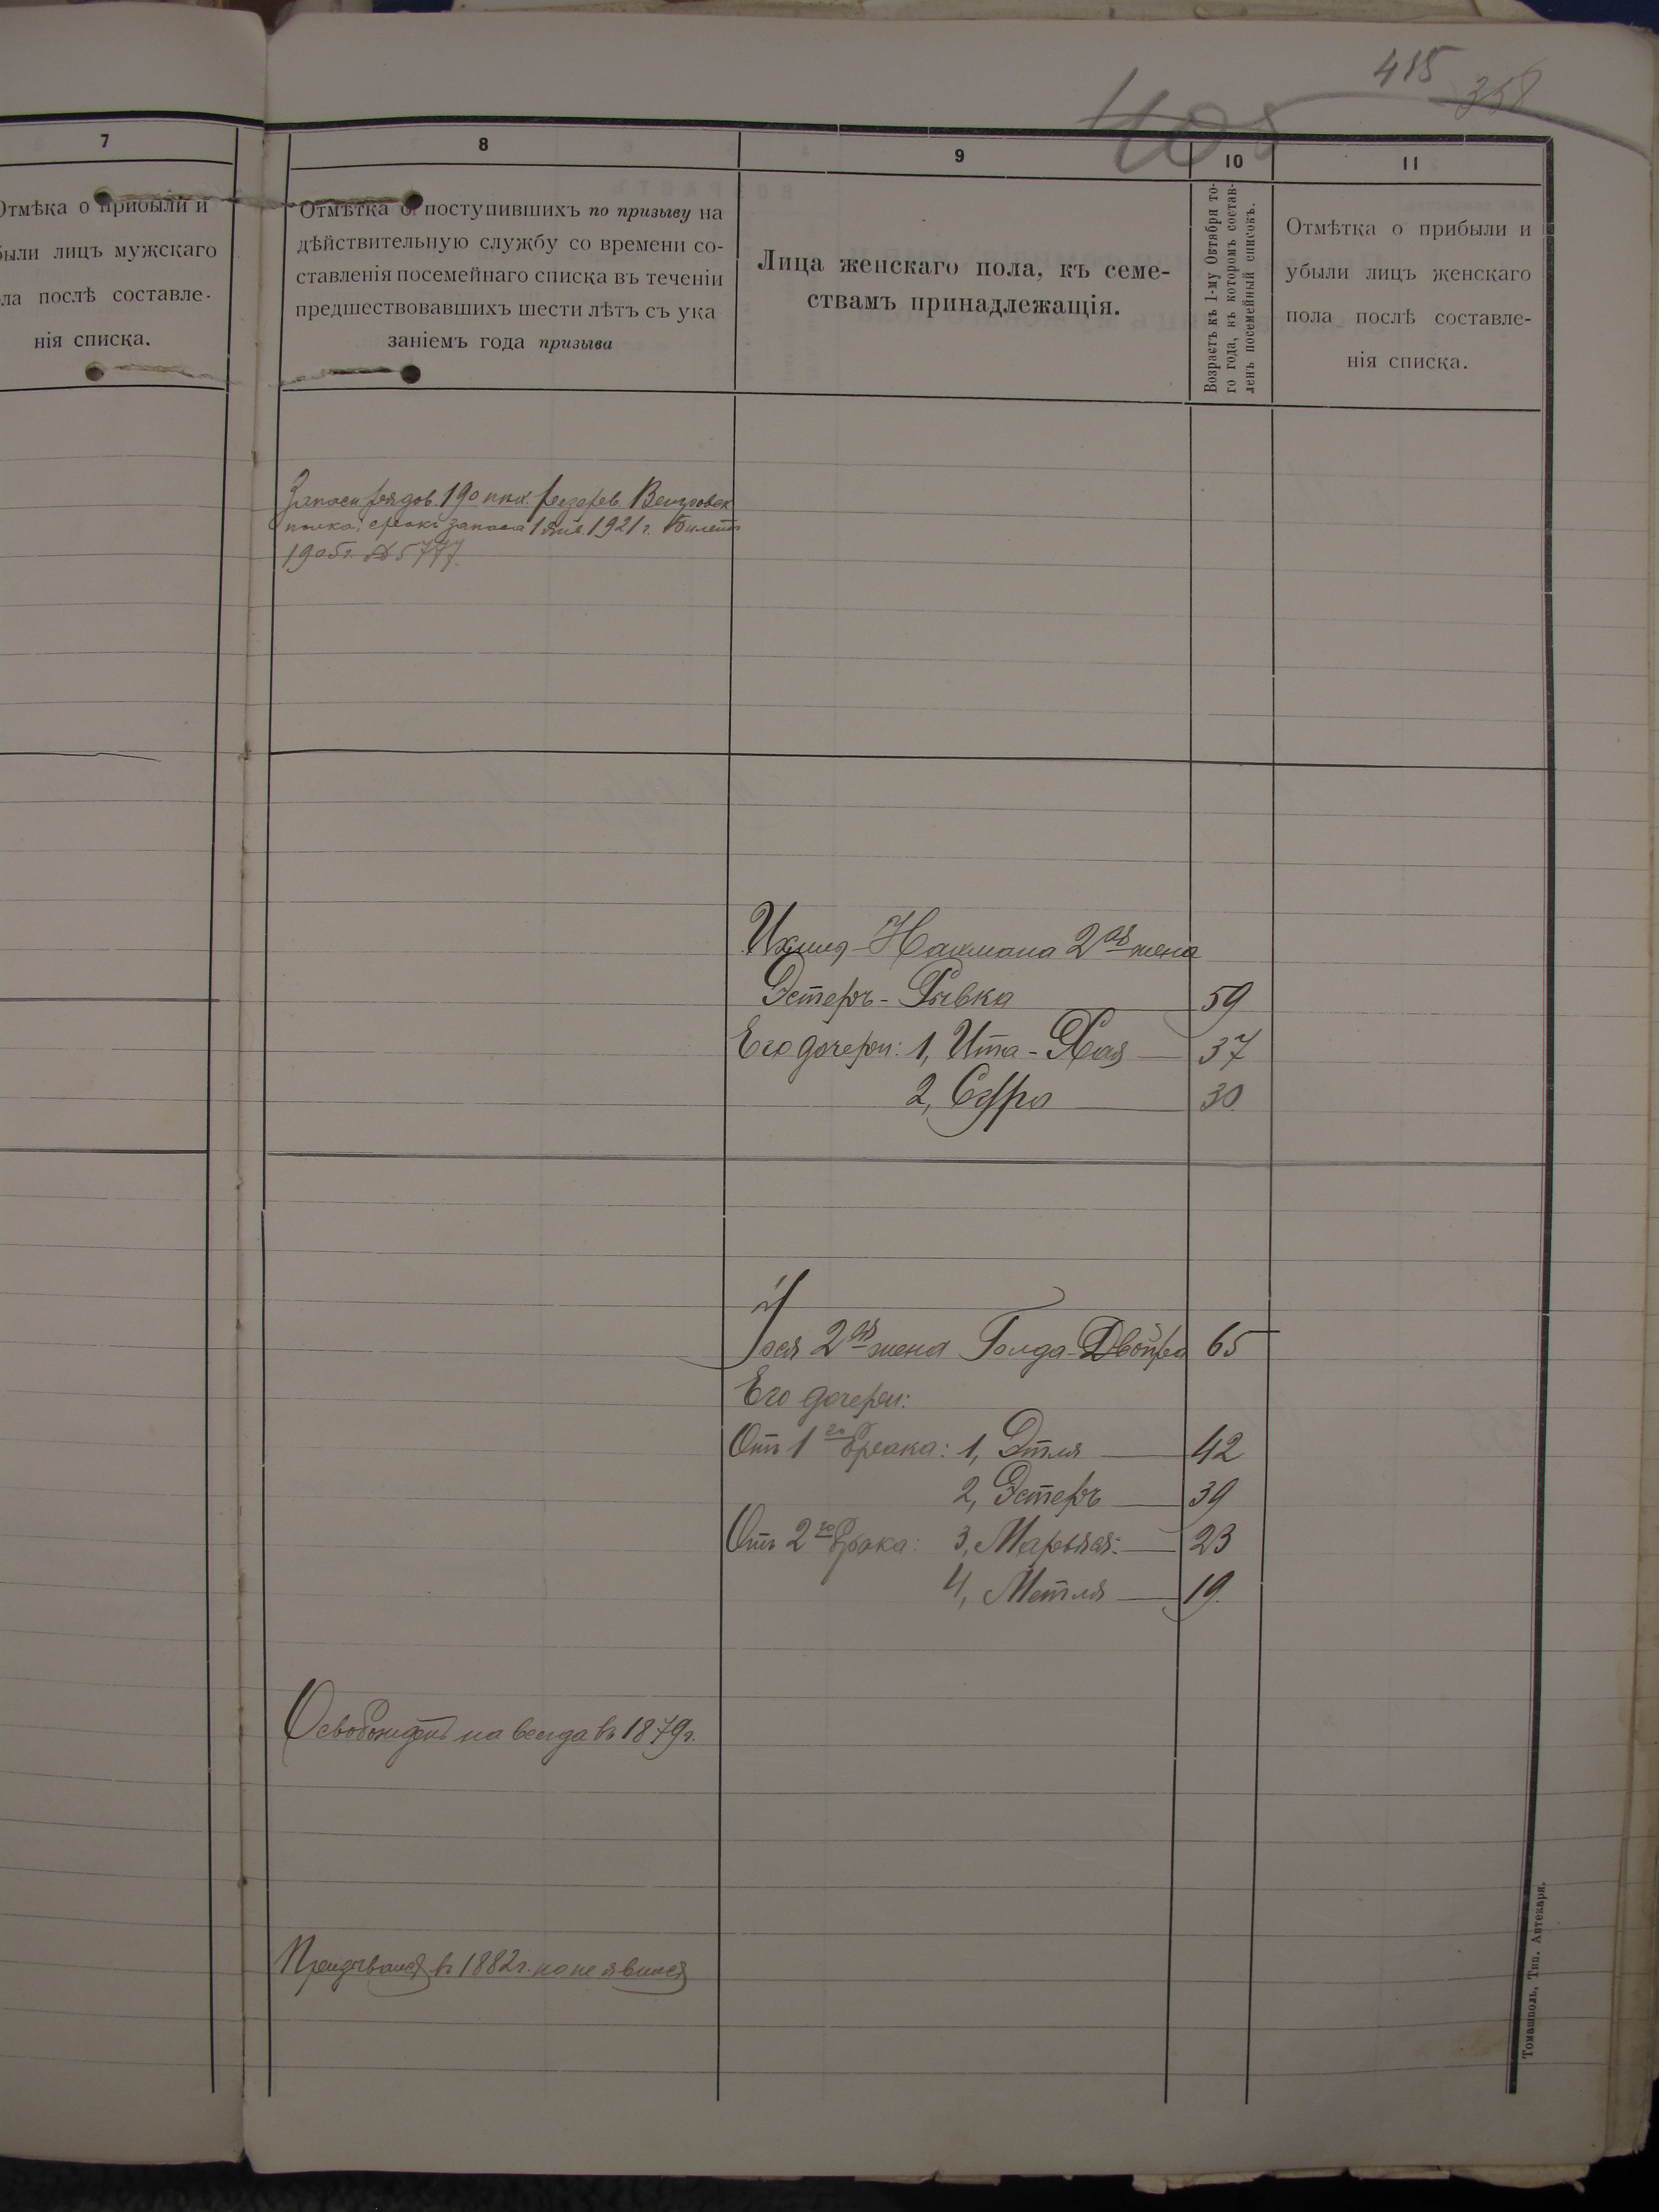 415
358
405
7
Отмѣтка о прибыли и
были лицъ мужскаго
ла послѣ составле-
нія списка.
8
Отмѣтка о поступившихъ по призыву на
дѣйствительную службу со времени со-
ставленія посемейнаго списка въ теченіи
предшествовавшихъ шести лѣтъ съ ука
заніемъ года призыва
9
Лица женскаго пола, къ семе-
ствамъ принадлежащія.
10
Возрастъ къ 1-му Октября то-
го года, въ которомъ состав-
ленъ посемейный списокъ.
11
Отмѣтка о прибыли и
убыли лицъ женскаго
пола послѣ составле-
нія списка.
Запасн рядов. 190 пѣх. резерв. Венгровск
полка; срокъ запаса 1 янв. 1921 г. Билетъ
1905 г. № 5777.
Нахмана 2ая жена
Эстеръ-Рывка 59
Его дочери: 1, Ита-Хая 37
2, Сура 30
2ая жена Голда-Двойра 65
Его дочери:
Отъ 1го брака: 1, Этля 42
2, Эстеръ 39
Отъ 2го брака: 3, Марьяя 23
4, Метля 19.
Освобожденъ на всегда въ 1879 г.
Призывался въ 1882 г. но не явился
Томашполь, Тип. Аптекаря.